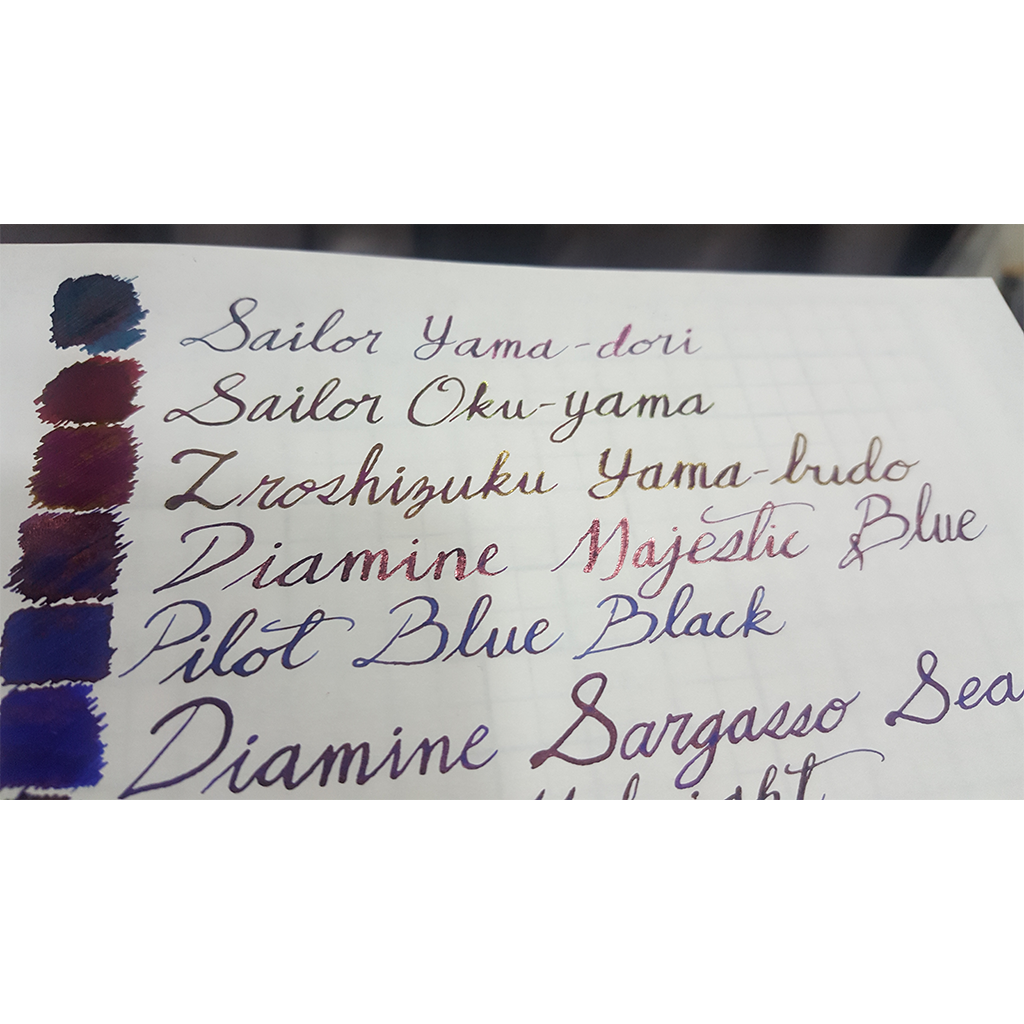 Sailor Yama-dori
Sailor Oku-yama
Iroshizuku Yama-budo
Diamine Majestic Blue
Pilot Blue Black
Diamine Sargasso Sea